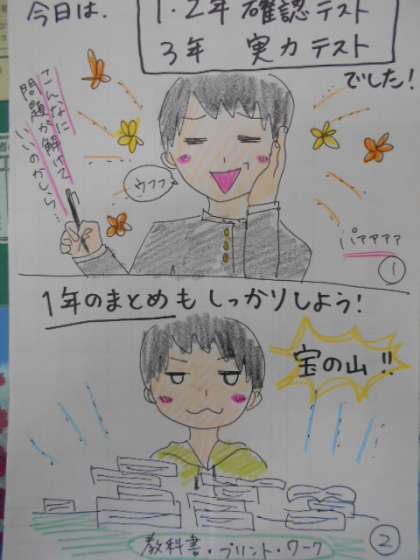 今日は、
1・2年 確認テスト
3年 実力テスト
でした!
こんなに
問題が解けて
いいのかしら…
ウフフ
パァァァァ
1
1年のまとめもしっかりしよう!
宝の山!!
教科書・プリント・ワーク
2